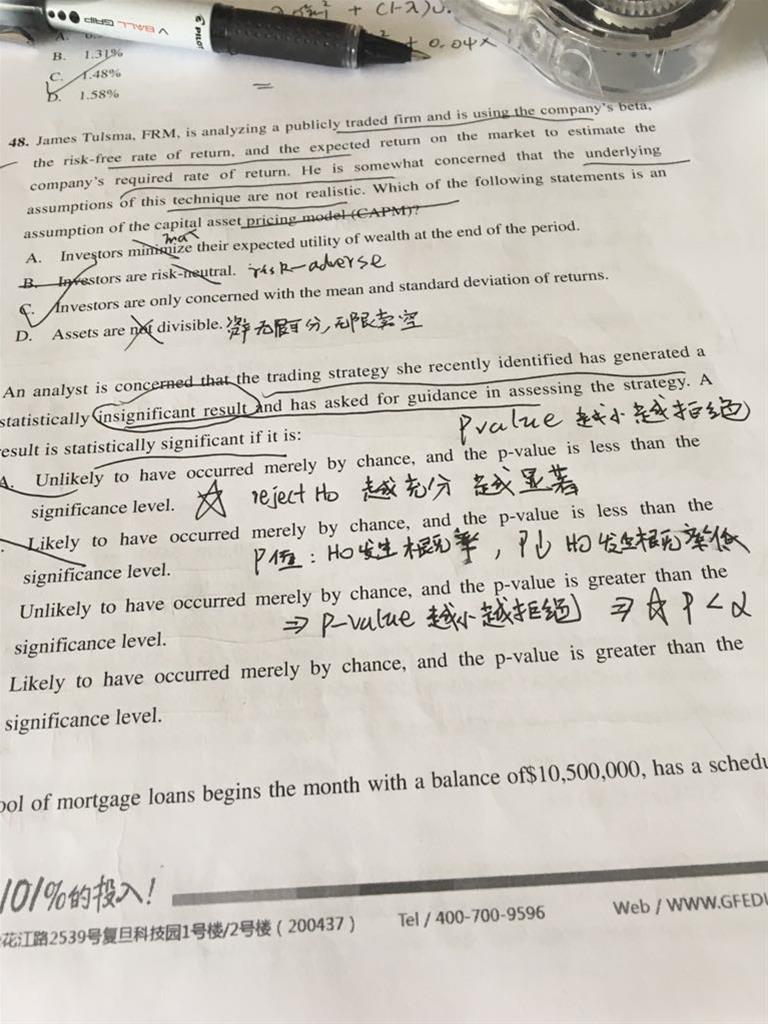 V BALL GRIP
PILOT
+ (1-λ)υ.
+ 0.04×
A.
B. 1.31%
C. 1.48%
D. 1.58%
=
48. James Tulsma, FRM, is analyzing a publicly traded firm and is using the company's beta,
the risk-free rate of return, and the expected return on the market to estimate the
company's required rate of return. He is somewhat concerned that the underlying
assumptions of this technique are not realistic. Which of the following statements is an
assumption of the capital asset pricing model (CAPM)?
max
A. Investors minimize their expected utility of wealth at the end of the period.
B. Investors are risk-neutral. risk-adverse
C. Investors are only concerned with the mean and standard deviation of returns.
D. Assets are not divisible. 无限可分,无限卖空
An analyst is concerned that the trading strategy she recently identified has generated a
statistically insignificant result and has asked for guidance in assessing the strategy. A
result is statistically significant if it is:
P value 越小越拒绝
A. Unlikely to have occurred merely by chance, and the p-value is less than the
significance level. ☆ reject H0 越充分 越显著
Likely to have occurred merely by chance, and the p-value is less than the
significance level. P值:H0发生概率,P↓ H0发生概率低
Unlikely to have occurred merely by chance, and the p-value is greater than the
significance level. ⇒ P-value 越小越拒绝 ⇒ ☆ P < α
Likely to have occurred merely by chance, and the p-value is greater than the
significance level.
ool of mortgage loans begins the month with a balance of$10,500,000, has a schedu
101%的投入!
花江路2539号复旦科技园1号楼/2号楼(200437) Tel / 400-700-9596 Web / WWW.GFEDU